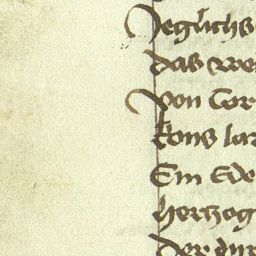 Jeglichs
das we
von Cor
kons lar
Ein Ede
hertzog
der dur